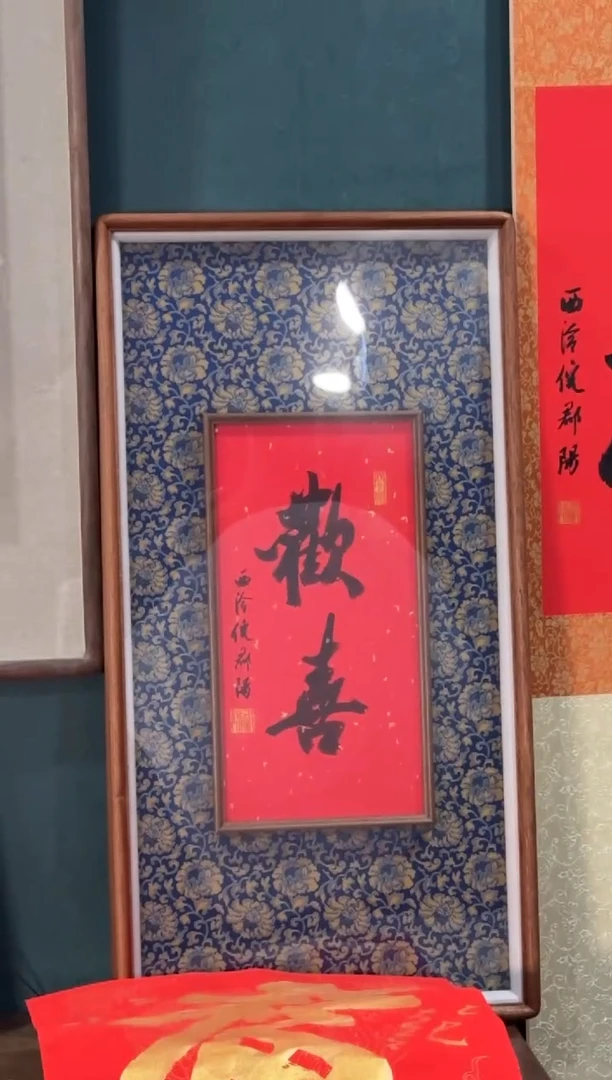 歡喜
西泠倪郡陽
西泠倪郡陽